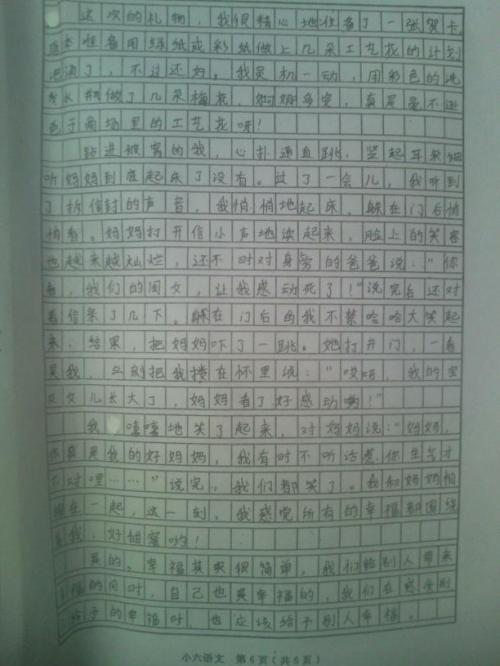 这次的礼物，我很精心地准备了一张贺卡，
原本准备用绿纸或彩纸做上几朵工艺花的计划
泡汤了，不过还好，我灵机一动，用彩色的
做了几朵梅花，婀娜多姿，真是毫不逊
色于商场里的工艺花呀！
钻进被窝的我，心扑通直跳，竖起耳朵细
听妈妈到底起床了没有。过了一会儿，我听到
了拆信封的声音，我悄悄地起床，躲在门后悄
悄看。妈妈打开信小声地读起来，脸上的笑容
也越来越灿烂，还不时对身旁的爸爸说：“你
看，我们的闺女，让我感动死了！”说完后还对
着信亲了几下。躲在门后的我不禁哈哈大笑起
来，结果，把妈妈吓了一跳。她打开门，一看
是我，立刻把我搂在怀里说：“哎哟，我的宝
贝女儿长大了，妈妈看了好感动哟！”
我嘻嘻地笑了起来，对妈妈说：“妈妈，
你真是我的好妈妈，我有时不听话惹你生气才
不对哩……”说完，我们都笑了。我和妈妈抱
在一起，这一刻，我感觉所有的幸福都围绕
着我，好甜蜜哟！
是的，幸福其实很简单，我们给别人带来
幸福的同时，自己也是幸福的，我们在感受别
人给予的幸福时，也应该给予别人幸福。
小六语文 第6页（共6页）